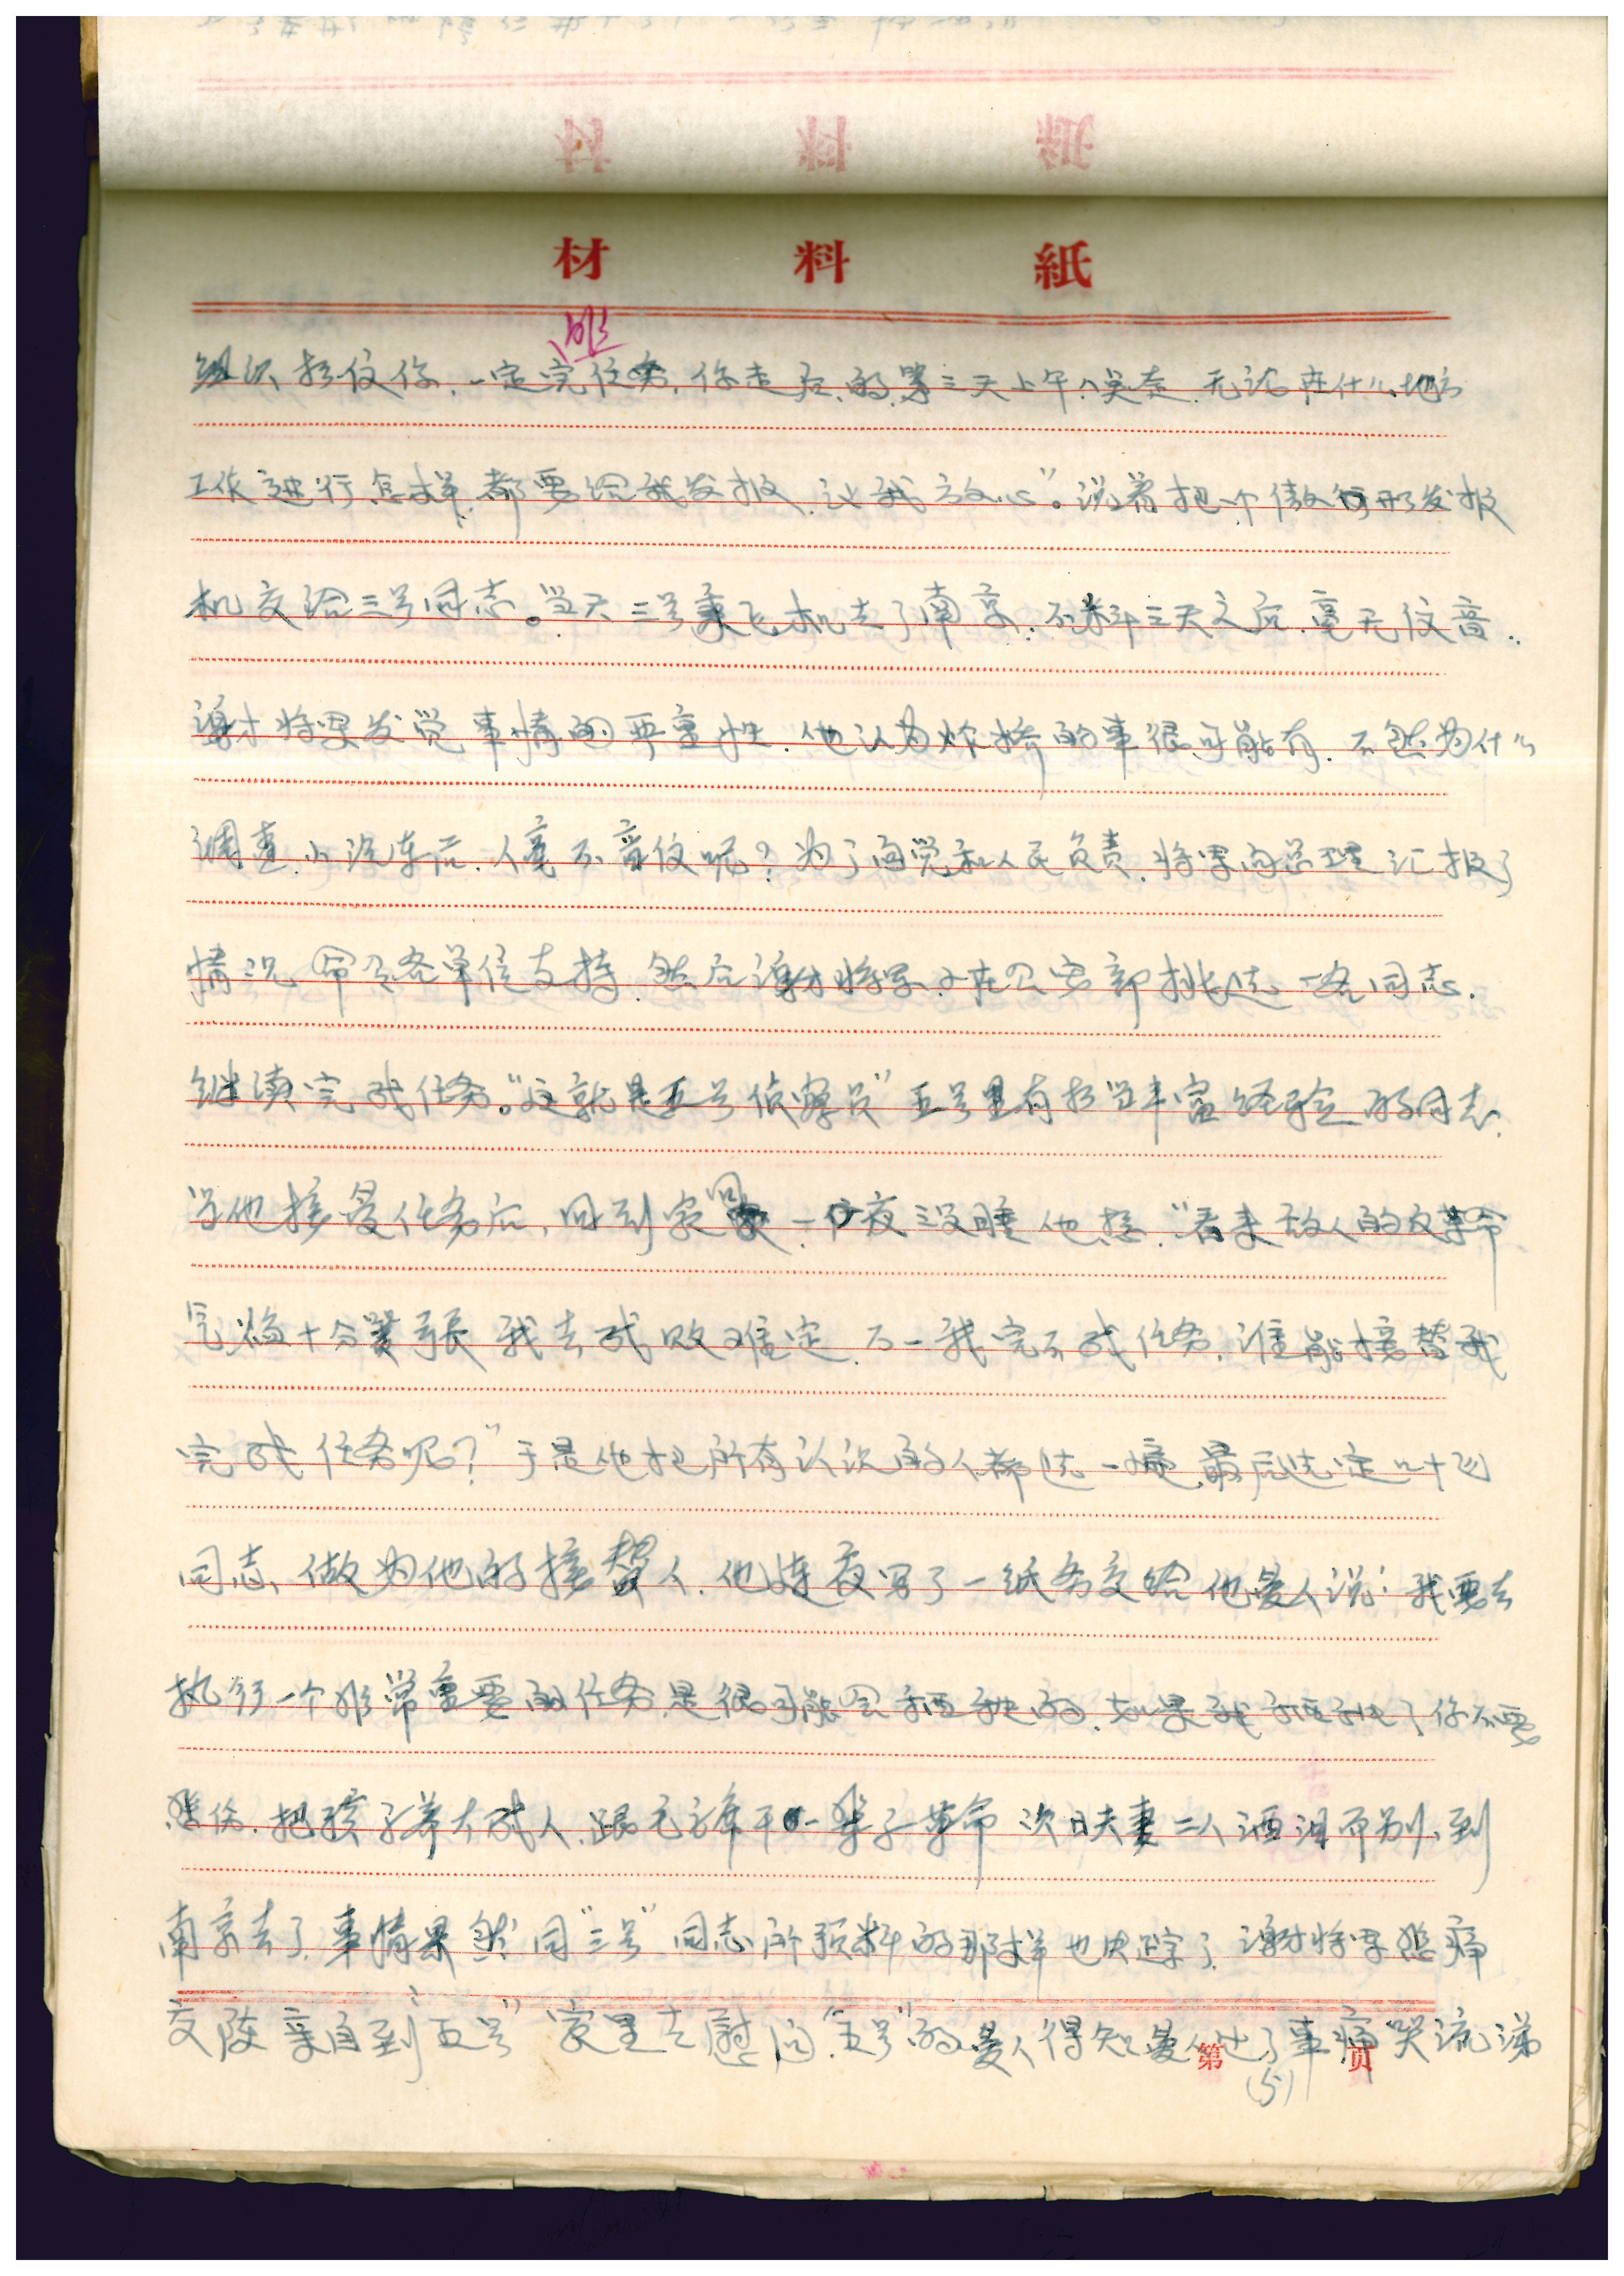 材料紙
成
组织相信你,一定完任务,你走后的第三天上午八点差,无论在什么地方
工作进行怎样,都要给我发报,让我放心”。说着把一个微型发报
机交给三号同志。当天三号乘飞机去了南京,不料三天之后,毫无信音.
谢才将军发觉事情的严重性.他认为炸桥的事很可能有.不然为什么
调查小汽车后,人毫不音信呢?为了向党和人民负责,将军向总理汇报了
情况 命令各单位支持.然后谢才将军又在公安部挑选一名同志.
继续完成任务。“这就是五号侦察员”五号是有相当丰富经验的同志.
当他接受任务后,回到家里,一夜没睡 他想,“看来敌人的反革命
气焰十分嚣张 我去成败难定,万一我完不成任务,谁能接替我
完成任务呢?”于是他把所有认识的人都选一遍,最后选定叶飞
同志,做为他的接替人.他连夜写了一纸条交给他爱人说:我要去
执行一个非常重要的任务是很可能会牺牲的,如果我牺牲了,你不要
悲伤.把孩子养大成人.跟毛主席干一辈子革命 次日夫妻二人洒泪而别,到
南京去了,事情果然同“三号”同志所预料的那样也失踪了.谢才将军悲痛
交际 亲自到“五号”家里去慰问“五号”的爱人得知爱人出了事痛哭流涕
第 页
(5)